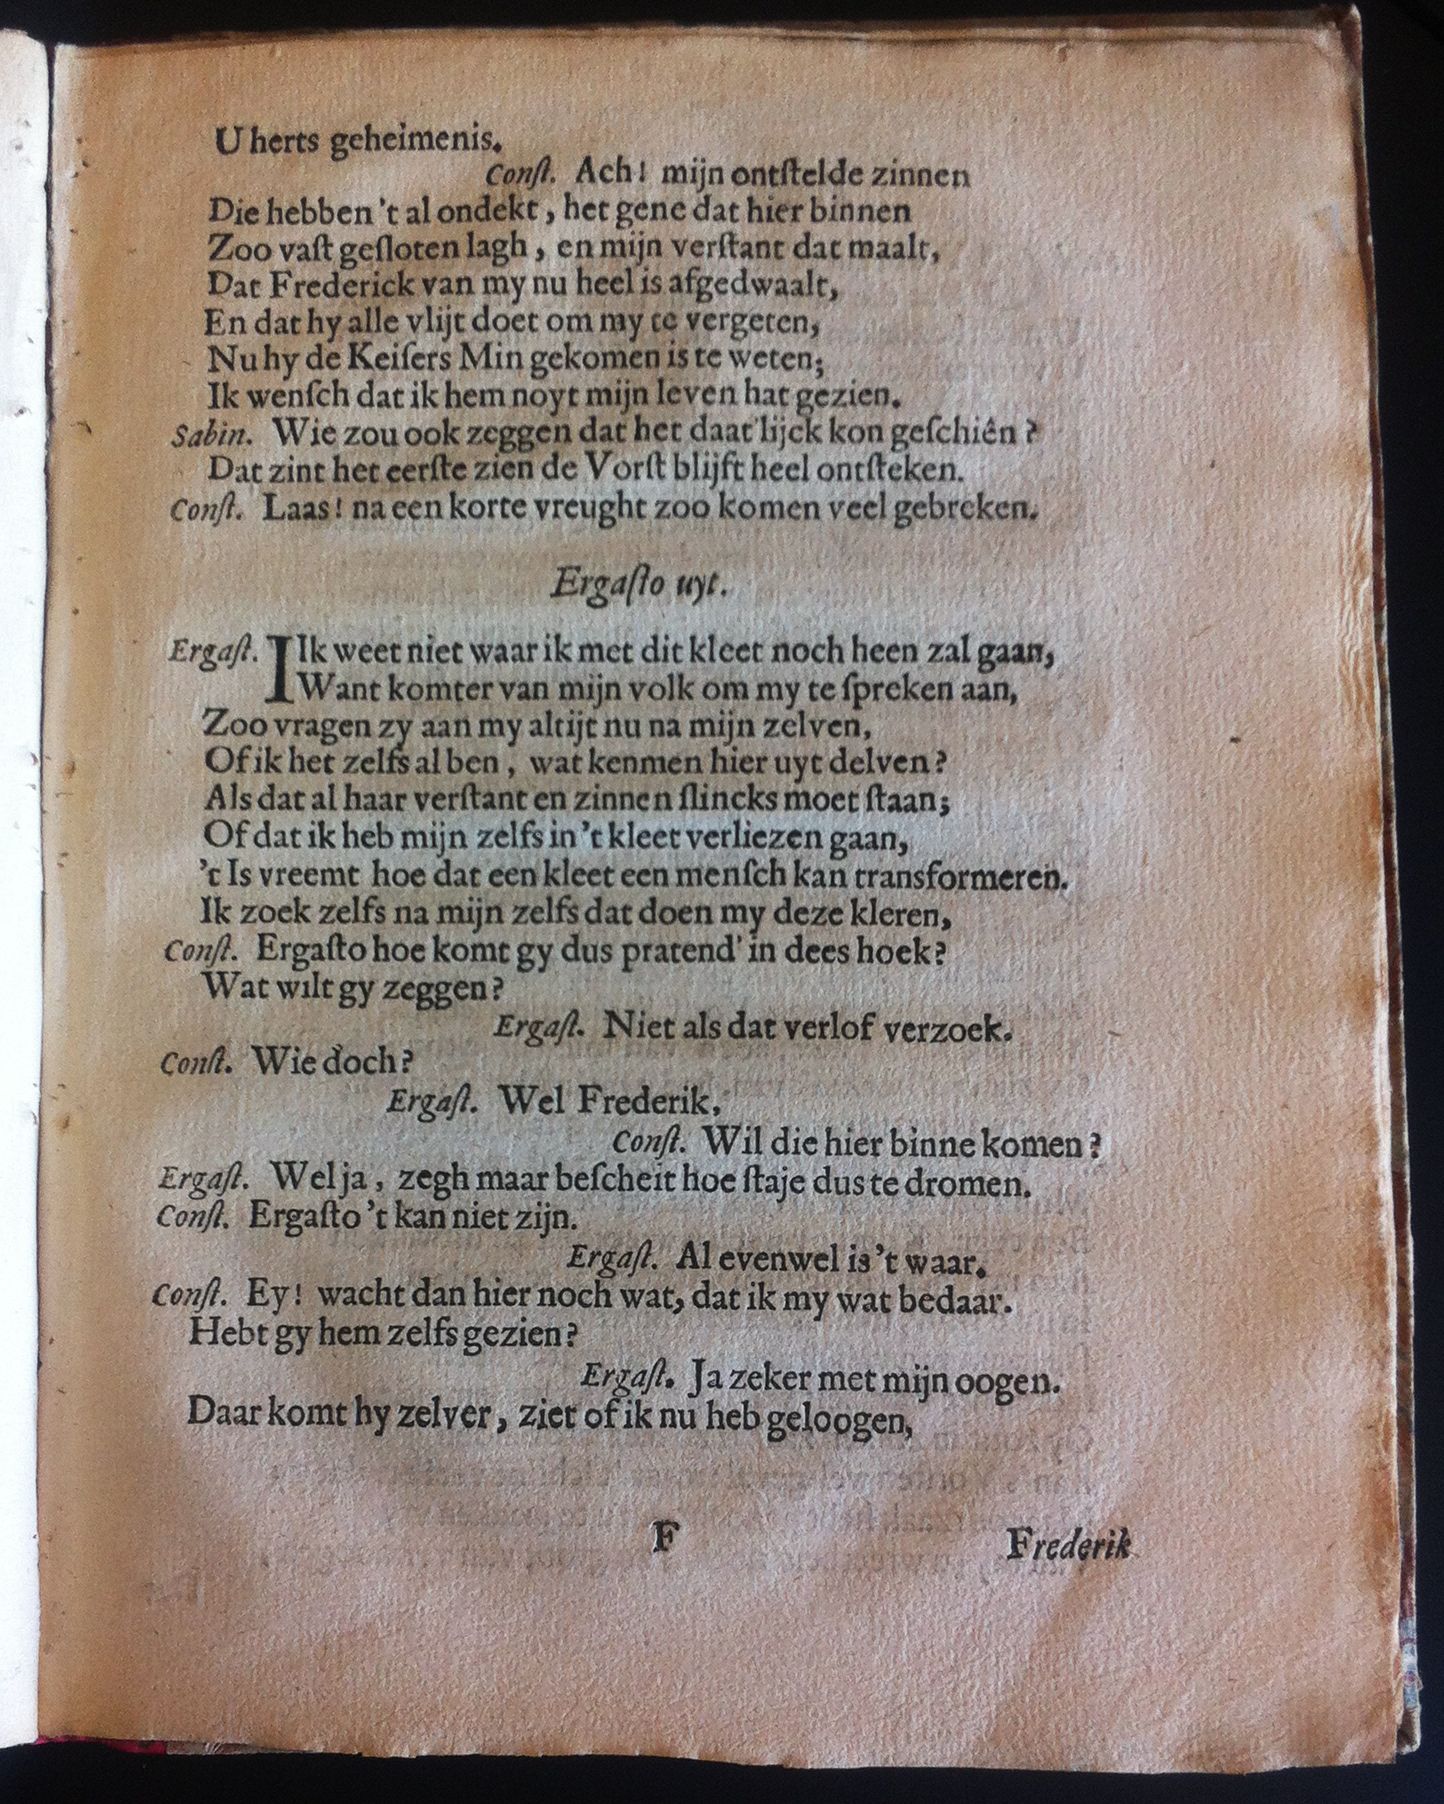 U herts geheimenis.
Conſt. Ach! mijn ontſtelde zinnen
Die hebben 't al ondekt, het gene dat hier binnen
Zoo vaſt geſloten lagh, en mijn verſtant dat maalt,
Dat Frederick van my nu heel is afgedwaalt,
En dat hy alle vlijt doet om my te vergeten,
Nu hy de Keiſers Min gekomen is te weten;
Ik wenſch dat ik hem noyt mijn leven hat gezien.
Sabin. Wie zou ook zeggen dat het daat'lijck kon geſchiên?
Dat zint het eerſte zien de Vorſt blijft heel ontſteken.
Conſt. Laas! na een korte vreught zoo komen veel gebreken.
Ergaſto uyt.
Ergaſt. IIk weet niet waar ik met dit kleet noch heen zal gaan,
Want komter van mijn volk om my te ſpreken aan,
Zoo vragen zy aan my altijt nu na mijn zelven,
Of ik het zelfs al ben, wat kenmen hier uyt delven?
Als dat al haar verſtant en zinnen ſlincks moet ſtaan;
Of dat ik heb mijn zelfs in 't kleet verliezen gaan,
't Is vreemt hoe dat een kleet een menſch kan transformeren.
Ik zoek zelfs na mijn zelfs dat doen my deze kleren,
Conſt. Ergaſto hoe komt gy dus pratend' in dees hoek?
Wat wilt gy zeggen?
Ergaſt. Niet als dat verlof verzoek.
Conſt. Wie doch?
Ergaſt. Wel Frederik,
Conſt. Wil die hier binne komen?
Ergaſt. Wel ja, zegh maar beſcheit hoe ſtaje dus te dromen.
Conſt. Ergaſto 't kan niet zijn.
Ergaſt. Al evenwel is 't waar.
Conſt. Ey! wacht dan hier noch wat, dat ik my wat bedaar.
Hebt gy hem zelfs gezien?
Ergaſt. Ja zeker met mijn oogen.
Daar komt hy zelver, ziet of ik nu heb geloogen,
F Frederik